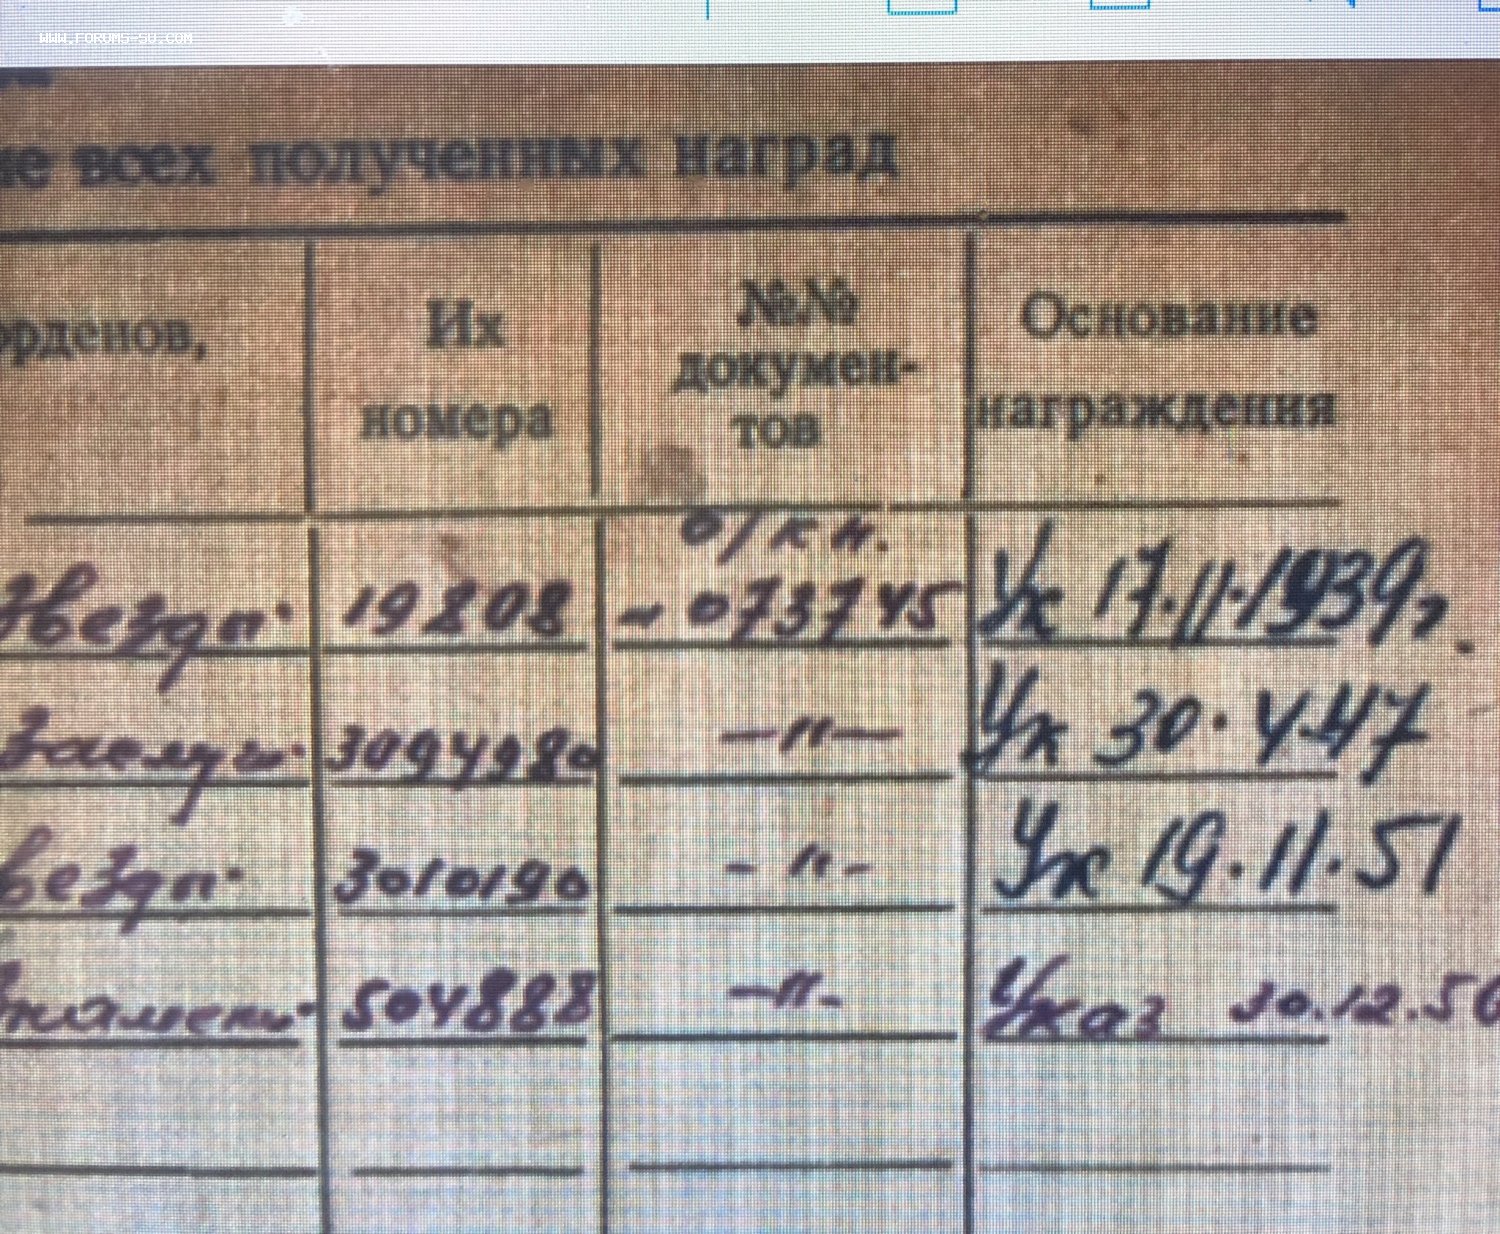 WWW.FORUMS-SU.COM
ие всех полученных наград
орденов,
Их номера
№№ докумен-
тов
Основание награждения
о/кн.
Звезды. 19808 - 073745 Ук 17.11.1939г.
3094980 —"— Ук 30.4.47
везды. 3010190 -"- Ук 19.11.51
Знамени. 504888 —"- Указ 30.12.56